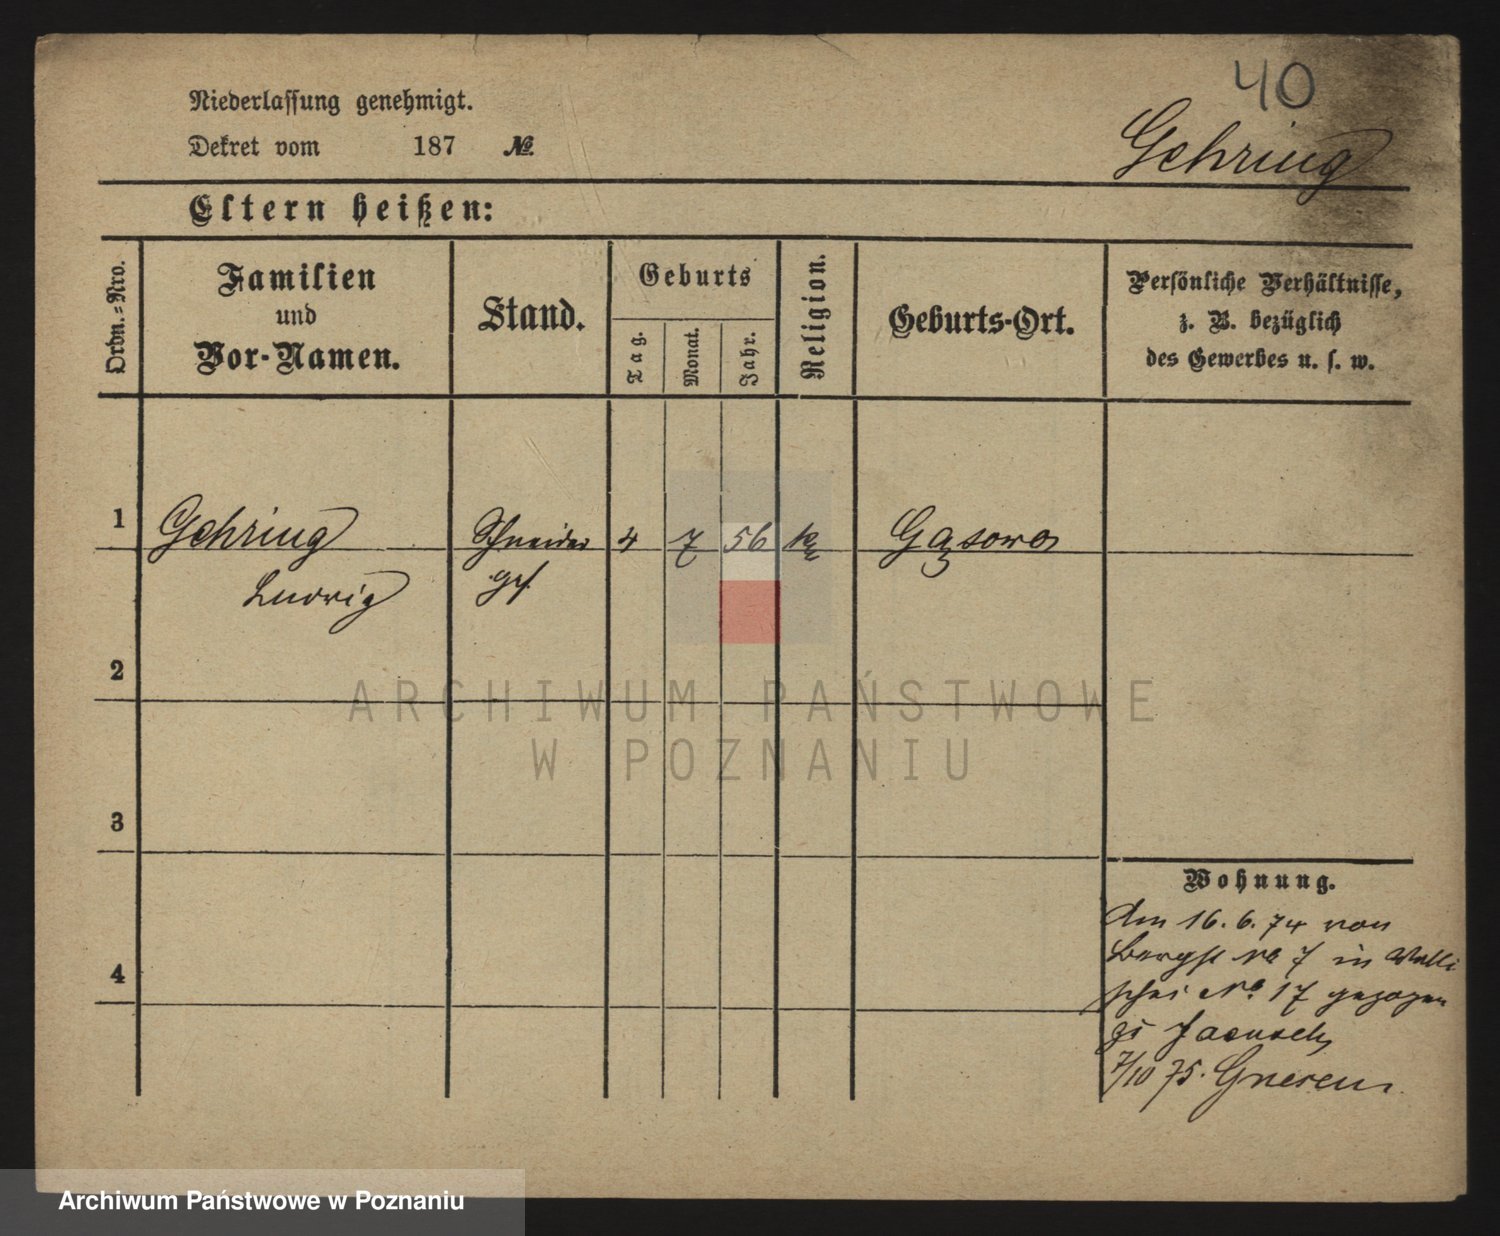 40
Niederlassung genehmigt.
Dekret vom 187 №
Gehring
Eltern heißen:
Ordn.-Nro.
Familien
und
Vor-Namen.
Stand.
Geburts
Tag.
Monat.
Jahr.
Religion.
Geburts-Ort.
Persönliche Verhältnisse,
z. B. bezüglich
des Gewerbes u. s. w.
1 Gehring Schneider 4 7 56 k Gąsowo
Ludwig ges.
2
ARCHIWUM PAŃSTWOWE
W POZNANIU
3
4
Wohnung.
Am 16.6.74 von
Bergst № 7 in Walli
schei № 17 gezogen
zu
7/10 75. Gnesen
Archiwum Państwowe w Poznaniu